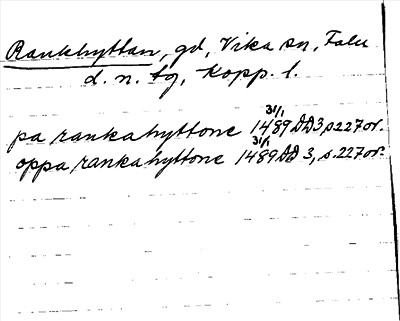 Rankhyttan, gd, Vika sn, Falu
d. n. tg, Kopp. l.
pa rankahyttone 31/1 1489 DD 3, s. 227 or.
oppa rankahyttone 31/1 1489 DD 3, s. 227 or.